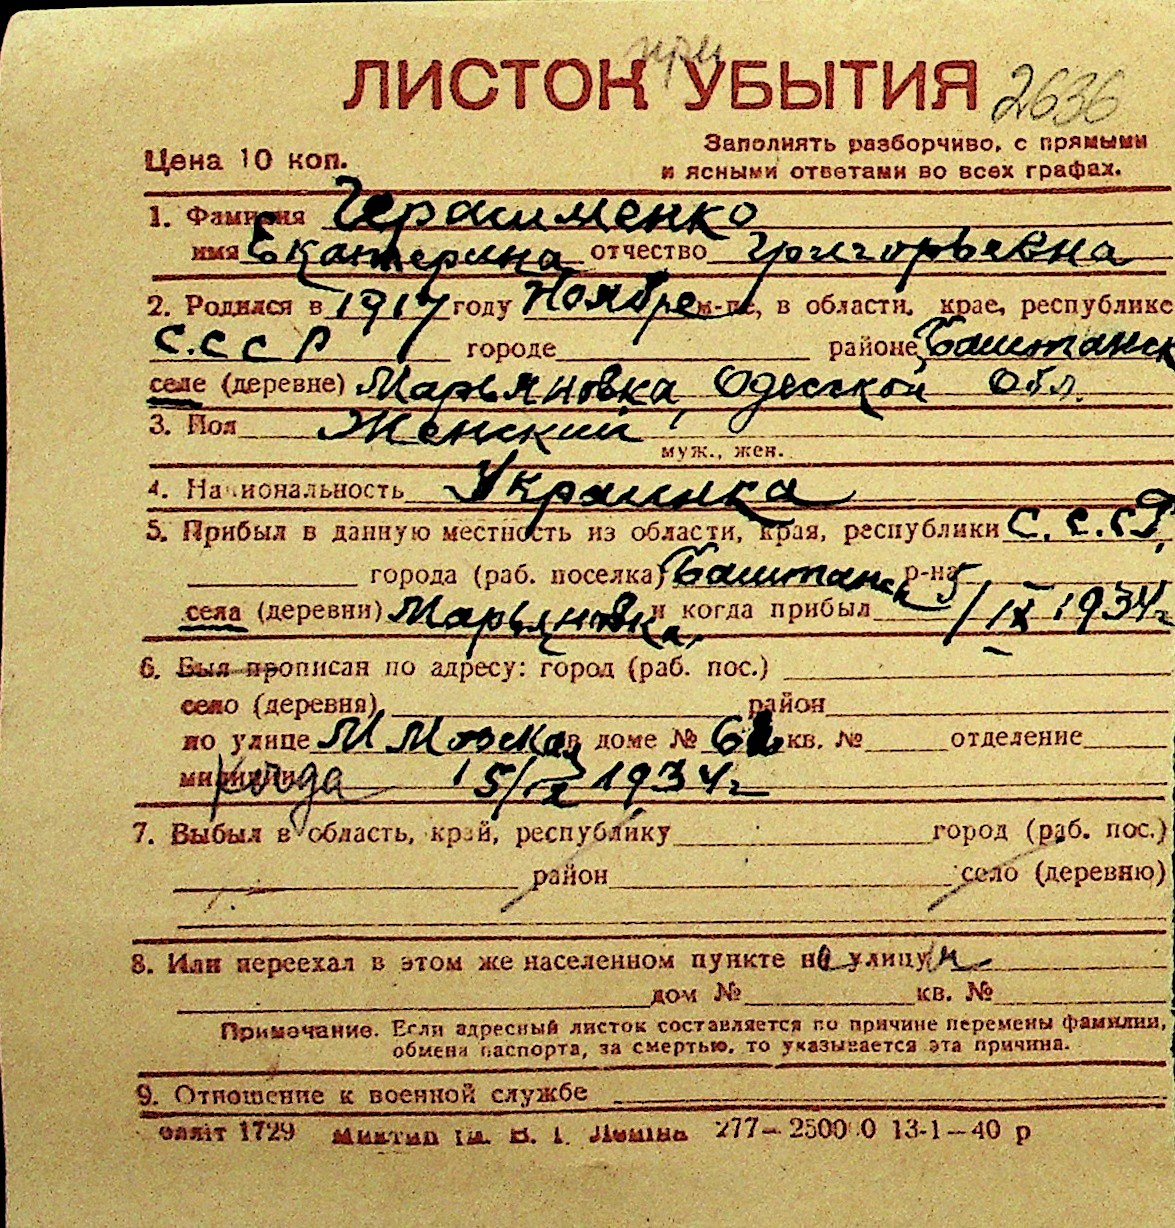 при
ЛИСТОК УБЫТИЯ 2636
Цена 10 коп.
Заполнять разборчиво, с прямыми
и ясными ответами во всех графах.
1. Фамилия Герасименко
имя Екатерина отчество Григорьевна
2. Родился в 1917 году Ноябре м-це, в области, крае, республике
С.С.С.Р городе районе Баштанск
селе (деревне) Марьяновка, Одесской Обл.
3. Пол Женский
муж., жен.
4. Национальность Украинка
5. Прибыл в данную местность из области, края, республики С.С.С.Р,
города (раб. поселка) Баштанск р-на
села (деревни) Марьяновка, и когда прибыл 5/IX 1934г
6. Был прописан по адресу: город (раб. пос.)
село (деревня) район
по улице в доме № кв. № отделение
милиции когда 15/IX 1934г
7. Выбыл в область, край, республику город (раб. пос.)
район село (деревню)
8. Или переехал в этом же населенном пункте на улицу
дом № кв. №
Примечание. Если адресный листок составляется по причине перемены фамилии,
обмена паспорта, за смертью, то указывается эта причина.
9. Отношение к военной службе
1729 277— 13-1—40 р